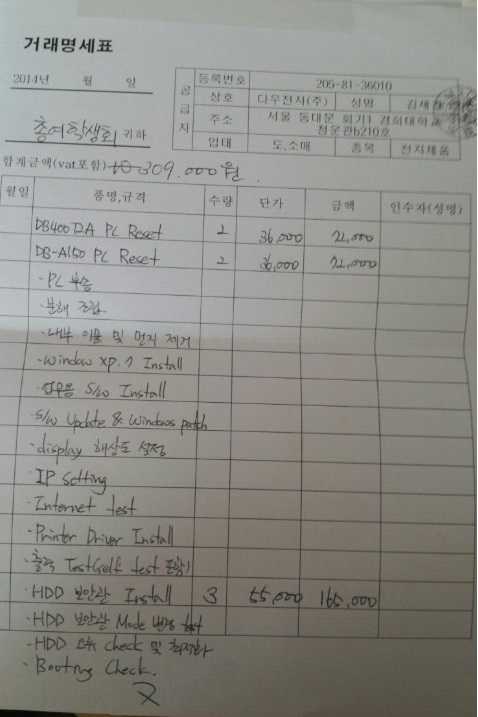 거래명세표
2014년 월 일
총여학생회 귀하
공급자
등록번호 205-81-36010
상호 다우전사(주) 성명
주소 서울 동대문 회기1 경희대학교
청운관b210호
업태 도,소매 종목 전자제품
합계금액(vat포함) 309.000원
월일 품명,규격 수량 단가 금액 인수자(성명)
PC Reset 2 36,000 72,000
DB-A150 PC Reset 2 36,000 72,000
·PC
·분해 조립
·내부 이물 및 먼지 제거
·Window XP. 7 Install
·업무용 S/W Install
·S/W Update & Windows patch
·display 해상도 설정
·IP Setting
·Internet test
·Printer Driver Install
·출력 Test(self test 포함)
·HDD 보안관 Install 3 55,000 165,000
·HDD 보안관 Mode 변경 test
·HDD check 및 최적화
·Booting Check.